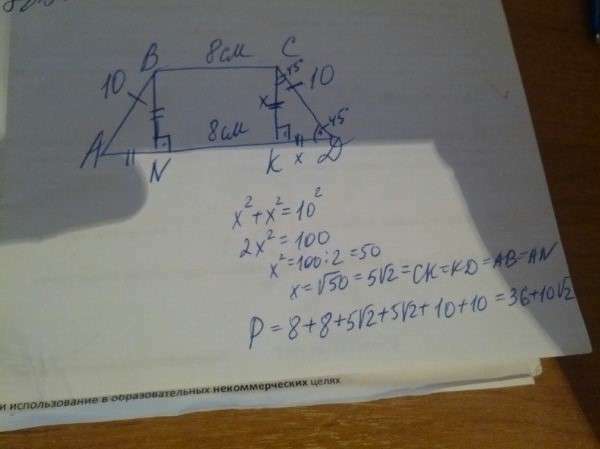 B 8см C
10 45 10
x
A 8см 45
N K x D
x² + x² = 10²
2x² = 100
x² = 100 : 2 = 50
x = √50 = 5√2 = CK = KD = AB = AN
P = 8 + 8 + 5√2 + 5√2 + 10 + 10 = 36 + 10√2
и использование в образовательных некоммерческих целях